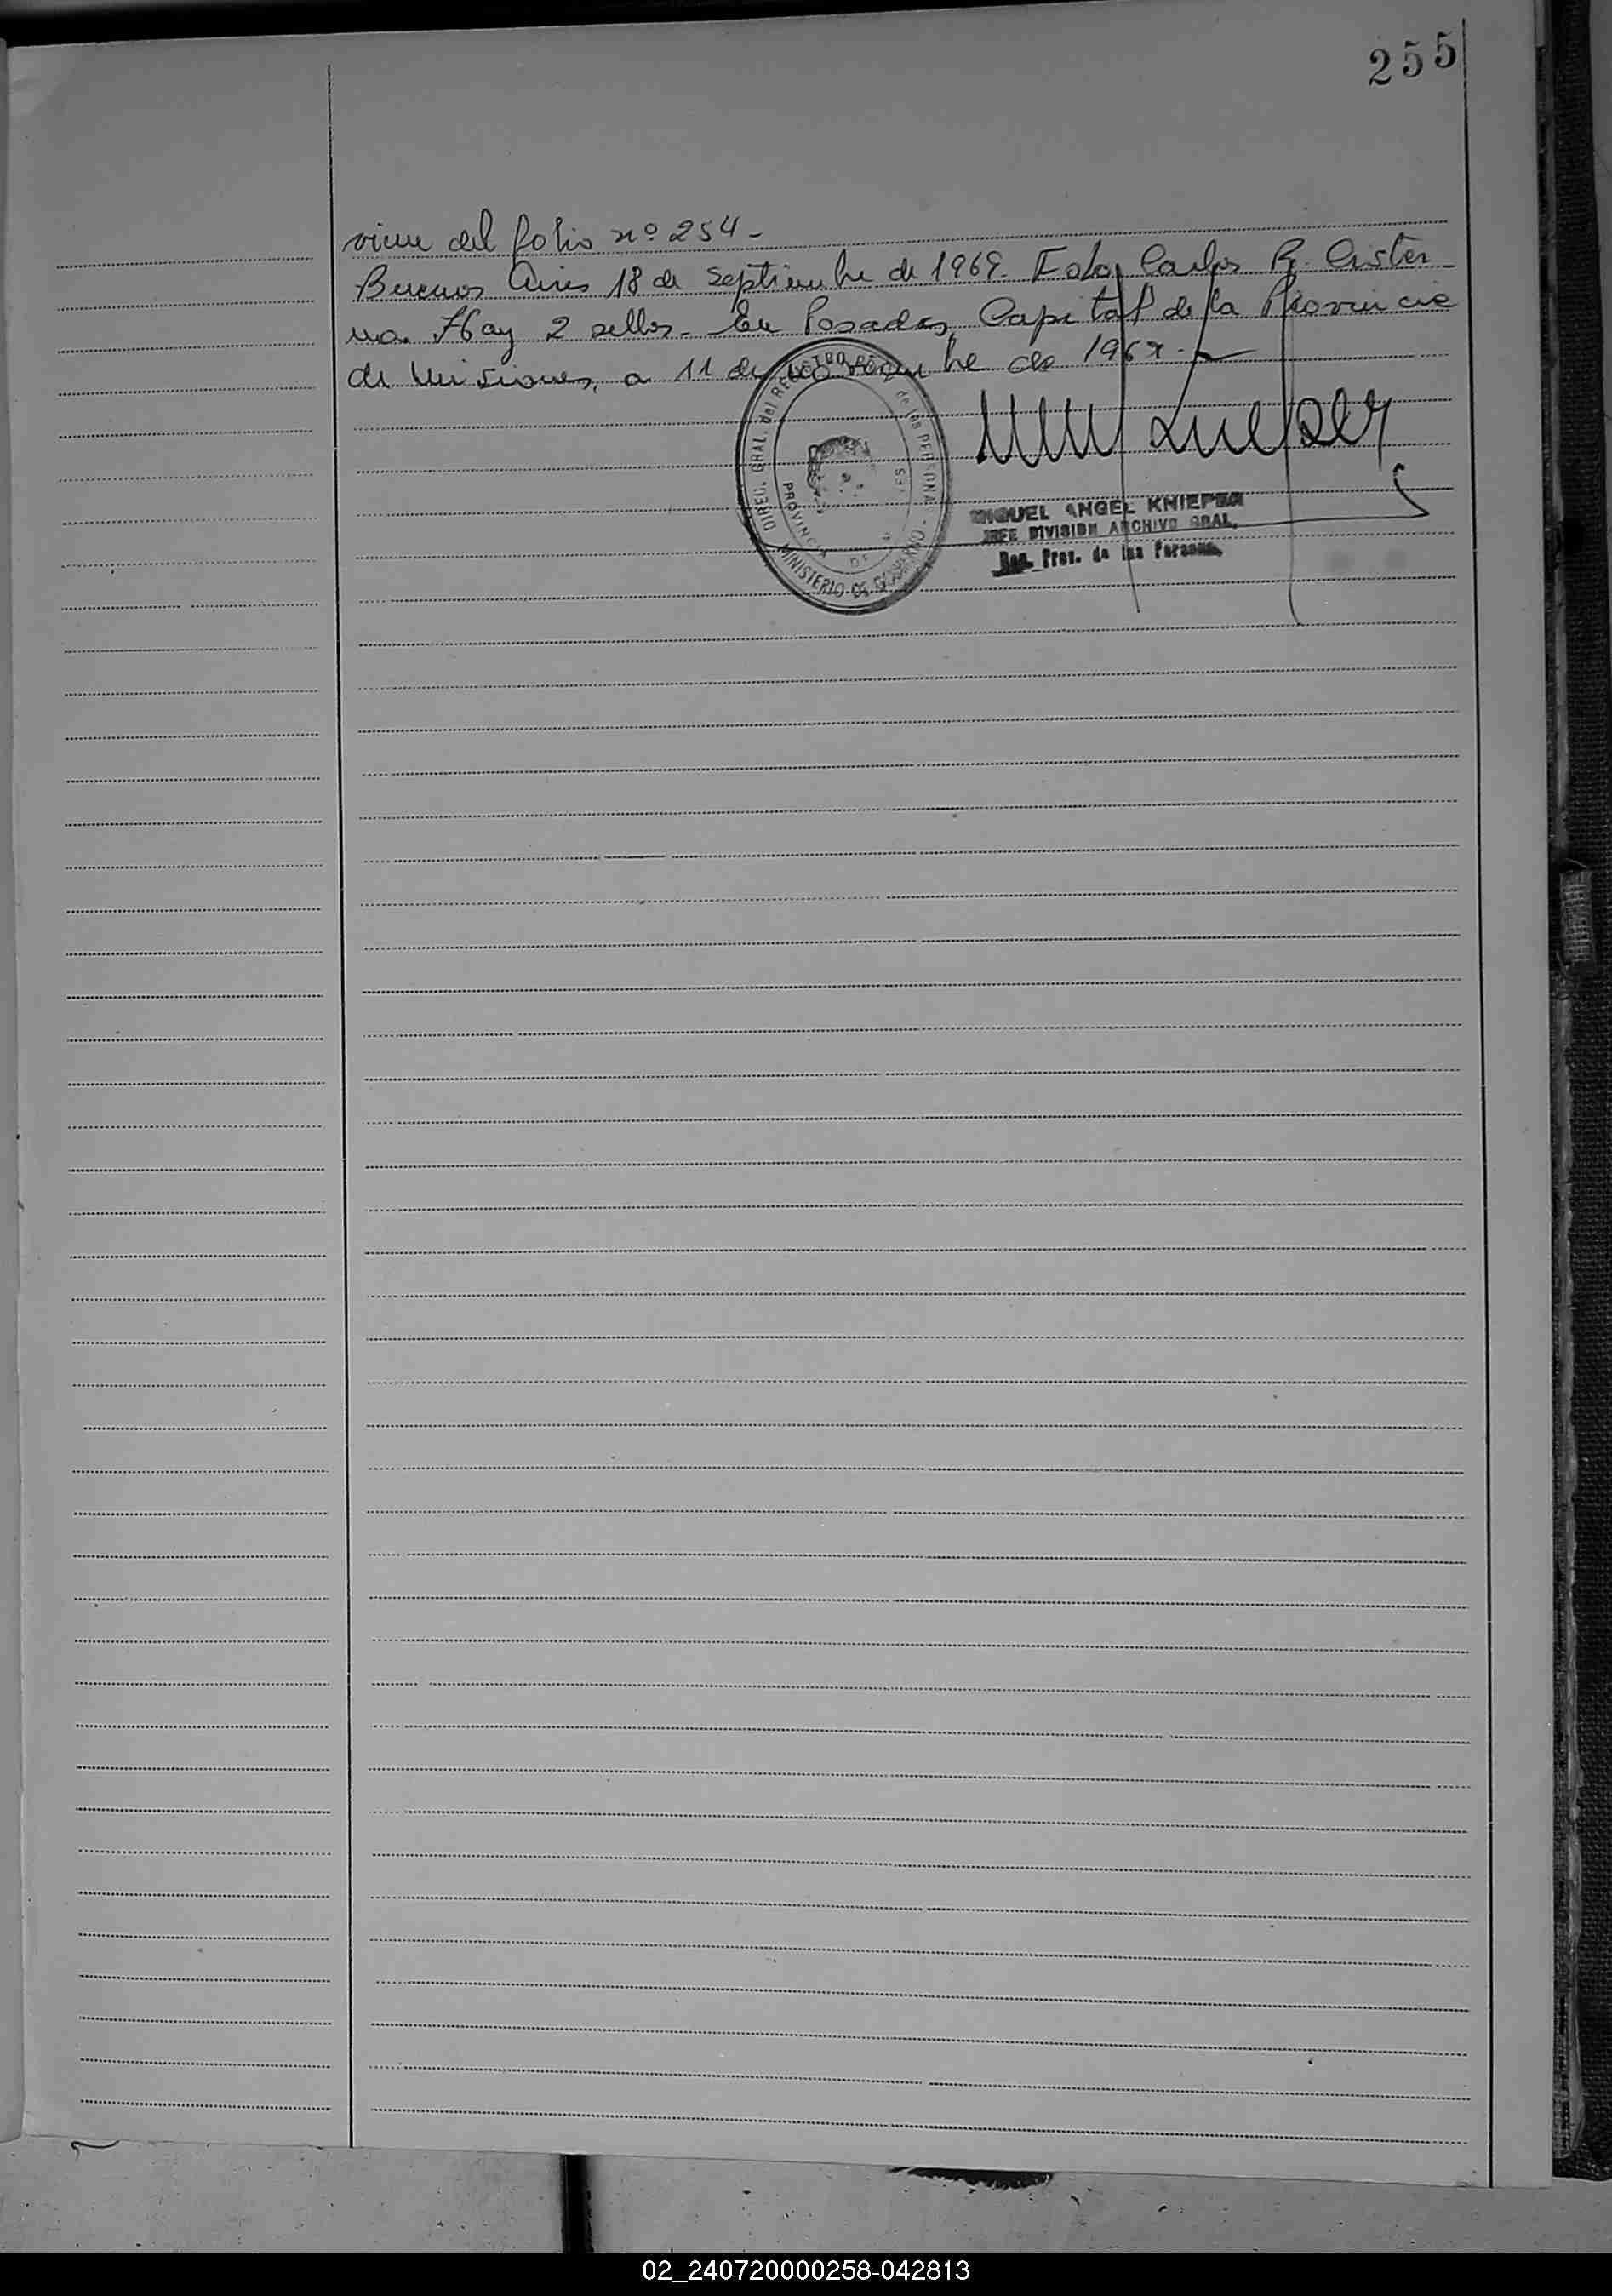 255
viene del folio nº 254-
Buenos Aires 18 de septiembre de 1969. Fdo, Carlos R. Cister-
na. Hay 2 sellos.- En Posadas, Capital de la Provincia
de Misiones, a 11 de noviembre de 1969.-
DIREC. GRAL. del REGISTRO de las PERSONAS -
MINISTERIO DE GOBIERNO
PROVINCIA DE
MIGUEL ANGEL KNIEPER
JEFE DIVISION ARCHIVO GRAL.
Reg. Prov. de las Personas
02_240720000258-042813